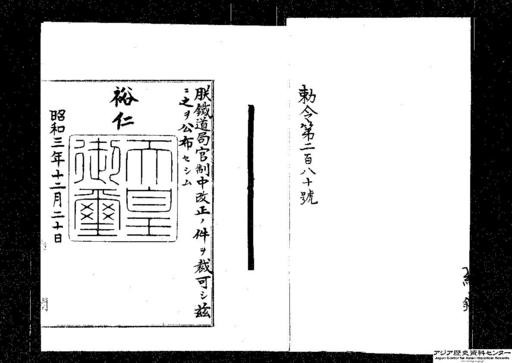 勅令第二百八十號
朕鐵道局官制中改正ノ件ヲ裁可シ茲
ニ之ヲ公布セシム
裕仁
天皇
御璽
昭和三年十二月二十日
アジア歴史資料センター
Japan Center for Asian Historical Records